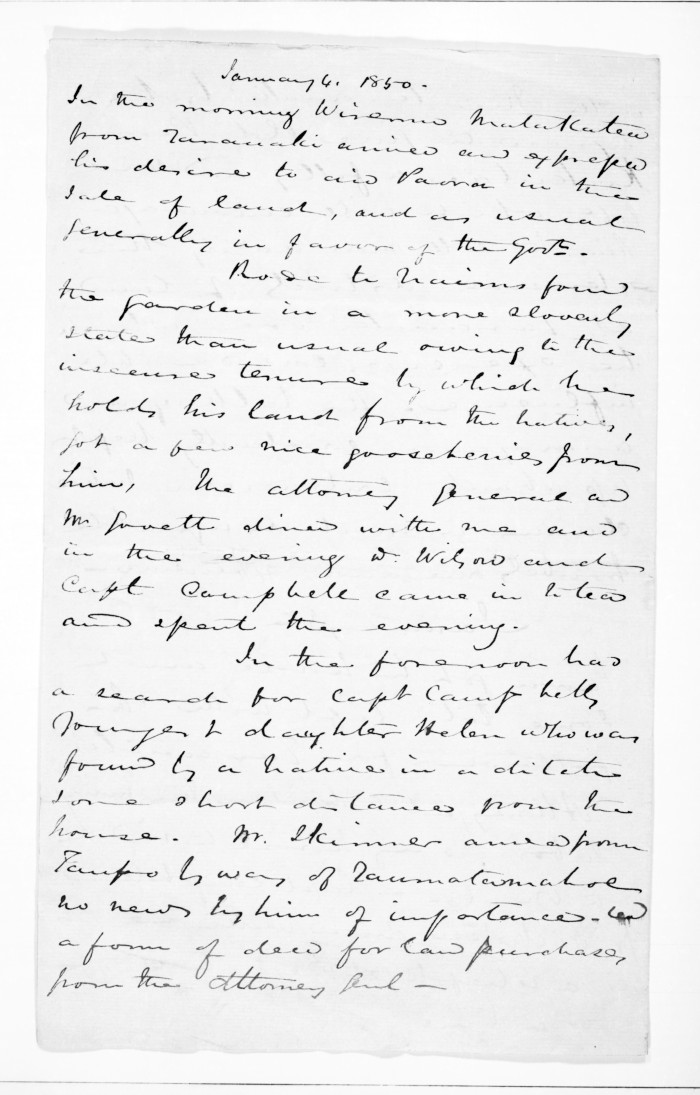 January 4. 1850.
In the morning Wiremu Matakatea
from Taranaki arrived and expressed
his desire to aid Paora in the
sale of land, and as usual
generally in favor of the Govt.
Rode to Nairns found
the garden in a more slovenly
state than usual owing to the
insecure tenure by which he
holds his land from the natives,
got a few nice gooseberries from
him, The attorney General and
Mr. Govett dined with me and
in the evening Dr. Wilson and
Capt Campbell came in to tea
and spent the evening.
In the forenoon had
a search for Capt Campbells
youngest daughter Helen who was
found by a native in a ditch
some short distance from the
house. Mr. Skinner arrived from
Taupo by way of Taumatamahoe
no news by him of importance.
a form of deed for land purchases,
from the Attorney Genl —